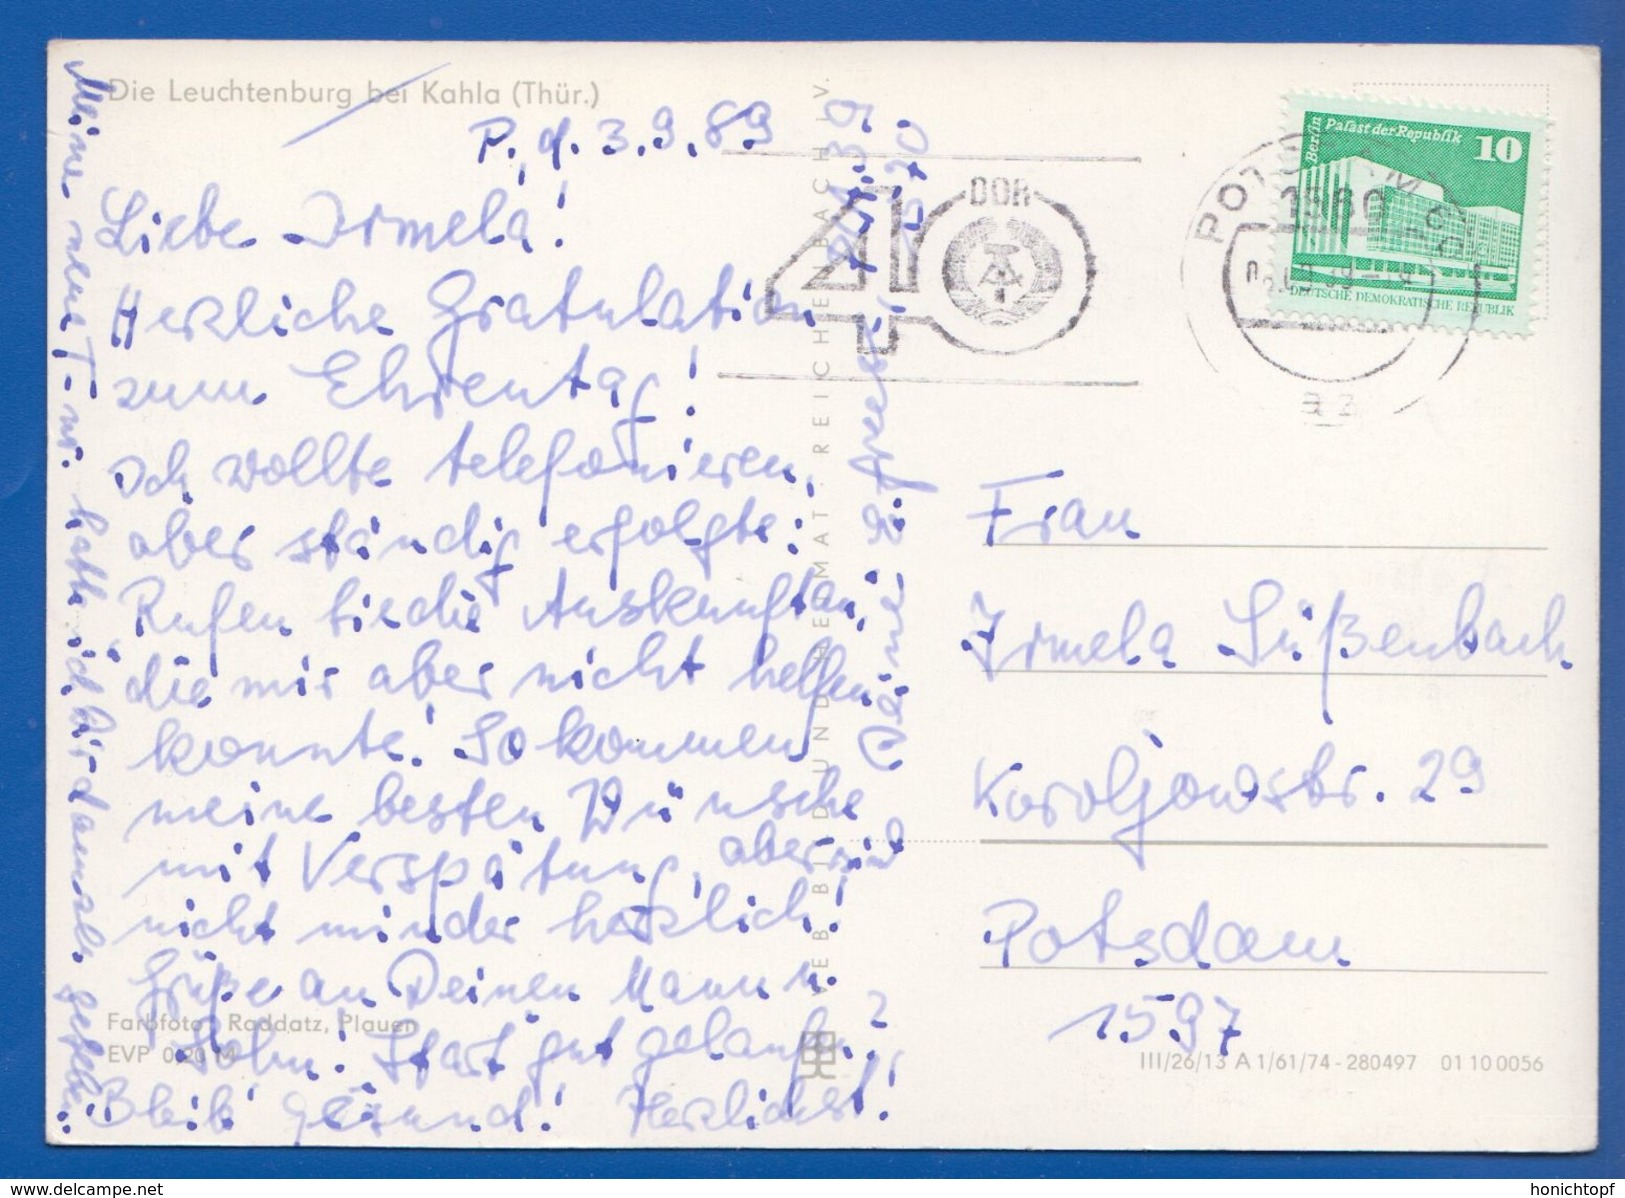 Die Leuchtenburg bei Kahla (Thür.)
P., d. 3.9.89
Liebe Irmela!
Herzliche Gratulation
zum Ehrentag!
Ich wollte telefonieren,
aber ständig erfolgte:
Rufen Sie die Auskunft an,
die mir aber nicht helfen
konnte. So kommen
meine besten Wünsche
mit Verspätung, aber
nicht minder herzlich!
Grüße an Deinen Mann u.
Sohn! Start gut gelaufen?
Bleib' gesund! Herzlichst!
Deine
Meine neue T-nr. hatte ich Dir damals gegeben:
Farbfoto: Raddatz, Plauen
EVP 0,20 M
VEB BILD UND HEIMAT REICHENBACH I. V.
DDR
40
POTSDAM
1580
az
Berlin
Palast der Republik
10
DEUTSCHE DEMOKRATISCHE REPUBLIK
Frau
Irmela Süßenbach
Koroljowstr. 29
Potsdam
1597
III/26/13 A 1/61/74-280497 01 10 0056
www.delcampe.net
honichtopf